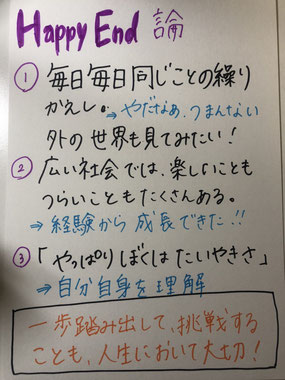 Happy End 論
① 毎日毎日同じことの繰り
かえし。⇒ やだなぁ、つまんない
外の世界も見てみたい!
② 広い社会では、楽しいことも
つらいこともたくさんある。
⇒ 経験から成長できた!!
③ 「やっぱりぼくはたいやきさ」
⇒ 自分自身を理解
一歩踏み出して、挑戦する
ことも、人生において大切!